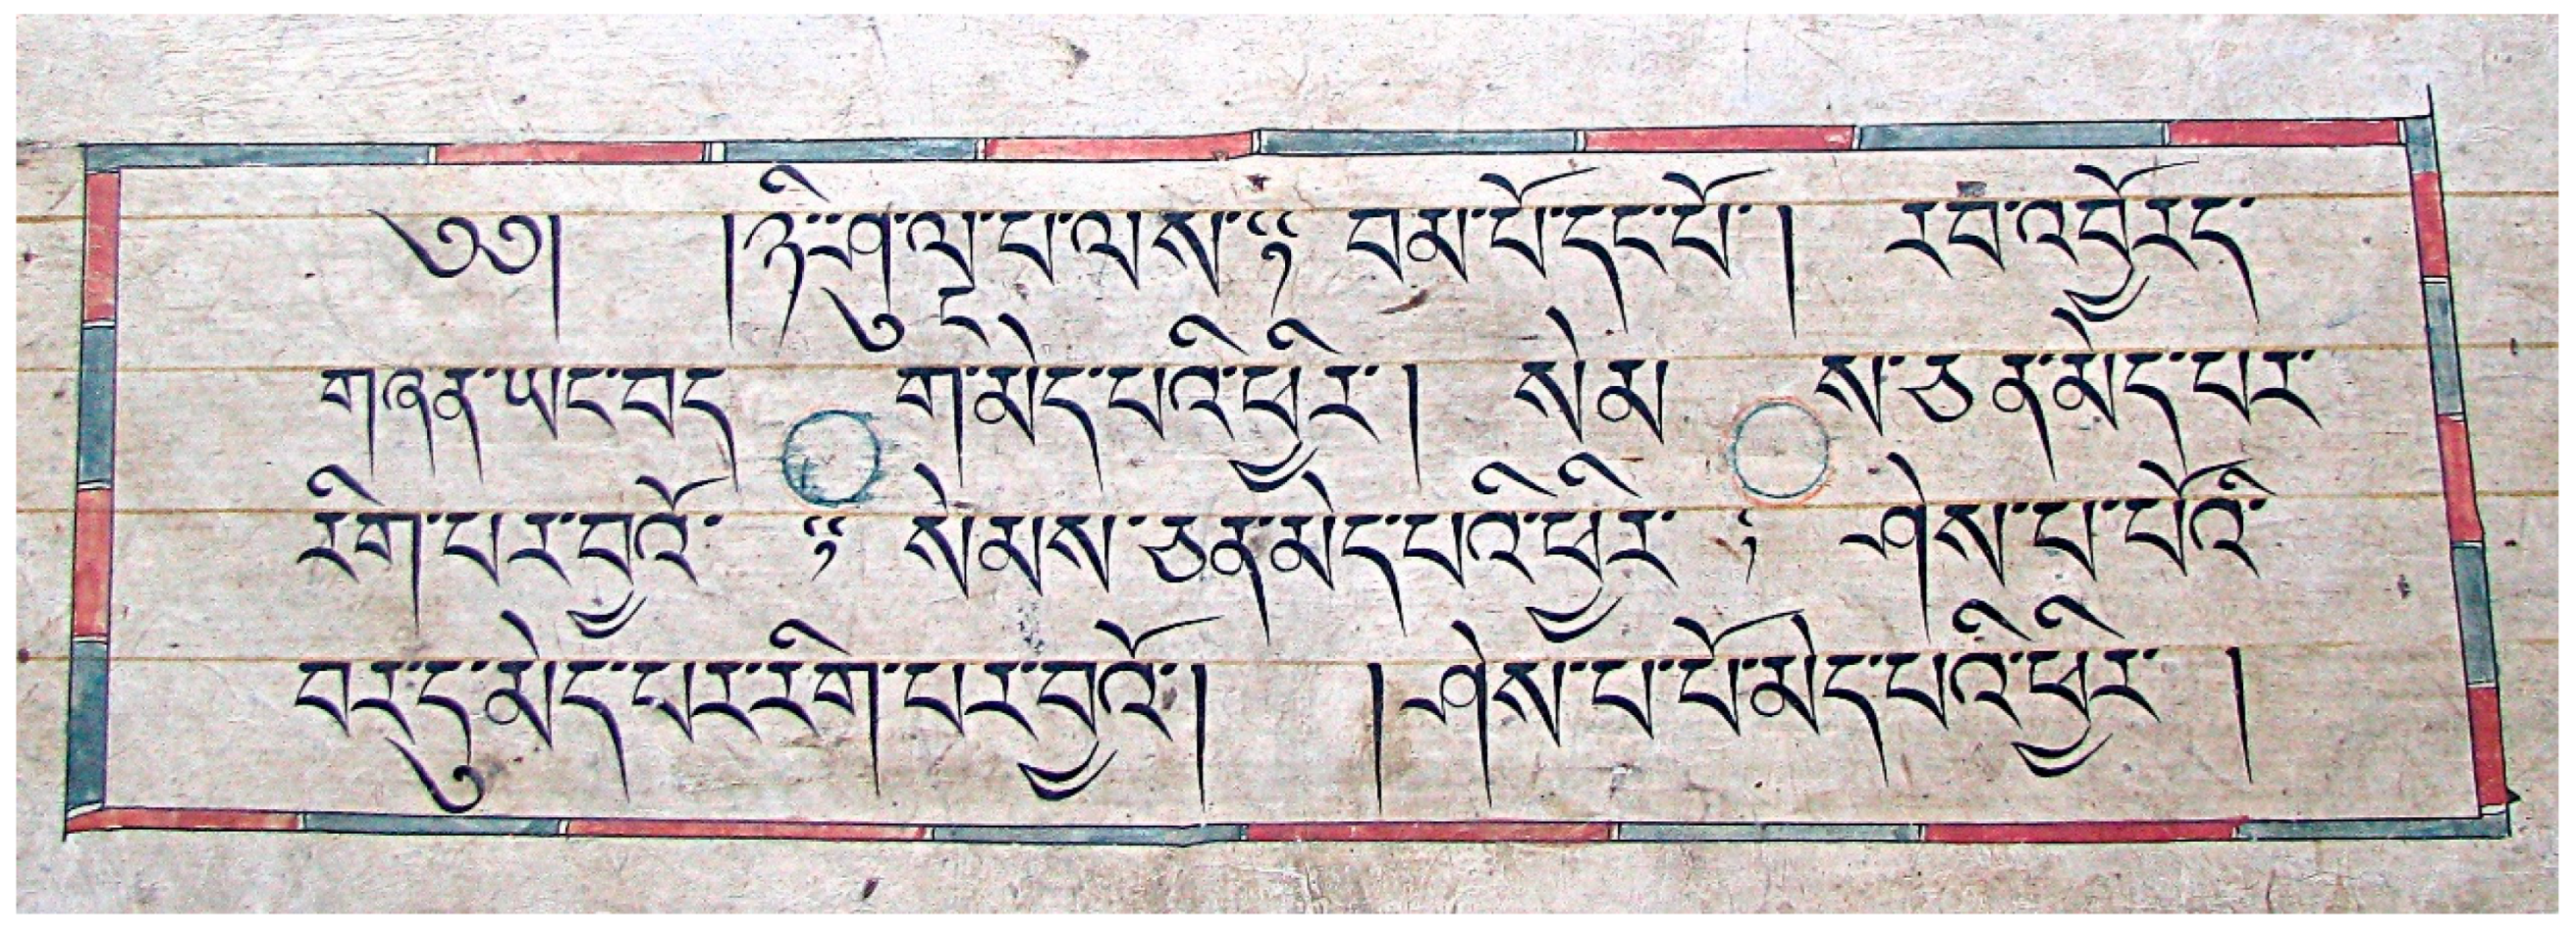 ༄༅། །ཉི་ཤུ་ལྔ་པ་ལས༔ བམ་པོ་དང་པོ། རབ་འབྱོརད་
གཞན་ཡང་བད ག་མེད་པའི་ཕྱིར། སེམ ས་ཅན་མེད་པར་
རིག་པར་བྱའོ་ ༔ སེམས་ཅན་མེད་པའི་ཕྱིར་ ་ ཤེས་པ་པོའི་
བར་དུ་མེད་པར་རིག་པར་བྱའོ། །ཤེས་པ་པོ་མེད་པའི་ཕྱིར་ །